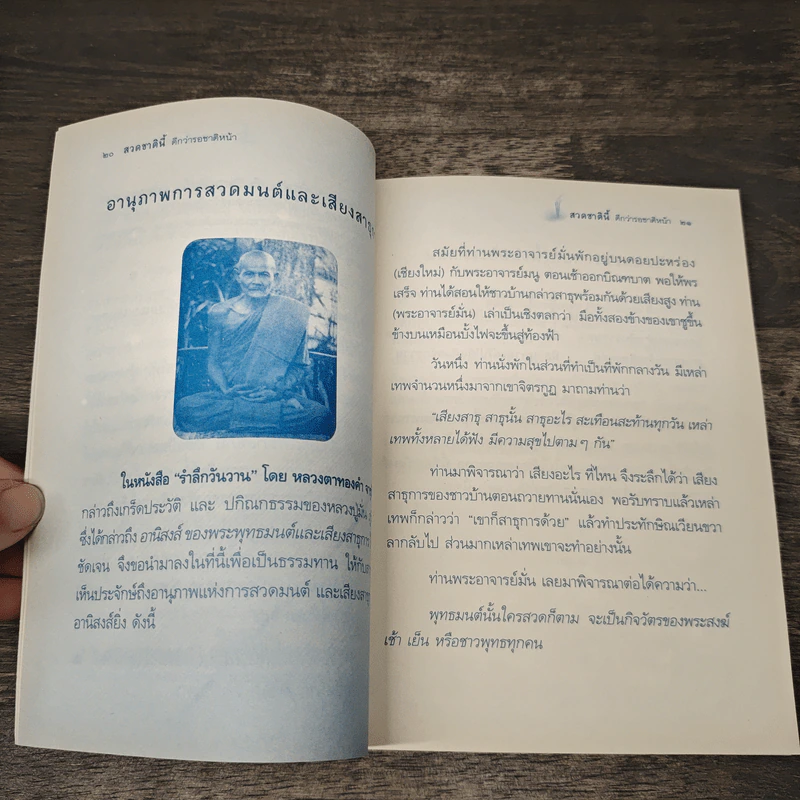 ๒๐ สวดชาตินี้ ดีกว่ารอชาติหน้า
อานุภาพการสวดมนต์และเสียงสาธุ
ในหนังสือ “รำลึกวันวาน” โดย หลวงตาทองคำ
กล่าวถึงเกร็ดประวัติ และ ปกิณกธรรมของหลวงปู่มั่น
ซึ่งได้กล่าวถึง อานิสงส์ ของพระพุทธมนต์และเสียงสาธุการ
ชัดเจน จึงขอนำมาลงในที่นี้เพื่อเป็นธรรมทาน
เห็นประจักษ์ถึงอานุภาพแห่งการสวดมนต์
อานิสงส์ยิ่ง ดังนี้
สวดชาตินี้ ดีกว่ารอชาติหน้า ๒๑
สมัยที่ท่านพระอาจารย์มั่นพักอยู่บนดอยปะหร่อง
(เชียงใหม่) กับพระอาจารย์มนู ตอนเช้าออกบิณฑบาต พอให้พร
เสร็จ ท่านได้สอนให้ชาวบ้านกล่าวสาธุพร้อมกันด้วยเสียงสูง ท่าน
(พระอาจารย์มั่น) เล่าเป็นเชิงตลกว่า มือทั้งสองข้างของเขาชูขึ้น
ข้างบนเหมือนบั้งไฟจะขึ้นสู่ท้องฟ้า
วันหนึ่ง ท่านนั่งพักในส่วนที่ทำเป็นที่พักกลางวัน มีเหล่า
เทพจำนวนหนึ่งมาจากเขาจิตรกูฏ มาถามท่านว่า
“เสียงสาธุ สาธุนั้น สาธุอะไร สะเทือนสะท้านทุกวัน เหล่า
เทพทั้งหลายได้ฟัง มีความสุขไปตามๆ กัน”
ท่านมาพิจารณาว่า เสียงอะไร ที่ไหน จึงระลึกได้ว่า เสียง
สาธุการของชาวบ้านตอนถวายทานนั่นเอง พอรับทราบแล้วเหล่า
เทพก็กล่าวว่า “เขาก็สาธุการด้วย” แล้วทำประทักษิณเวียนขวา
ลากลับไป ส่วนมากเหล่าเทพเขาจะทำอย่างนั้น
ท่านพระอาจารย์มั่น เลยมาพิจารณาต่อได้ความว่า...
พุทธมนต์นั้นใครสวดก็ตาม จะเป็นกิจวัตรของพระสงฆ์
เช้า เย็น หรือชาวพุทธทุกคน